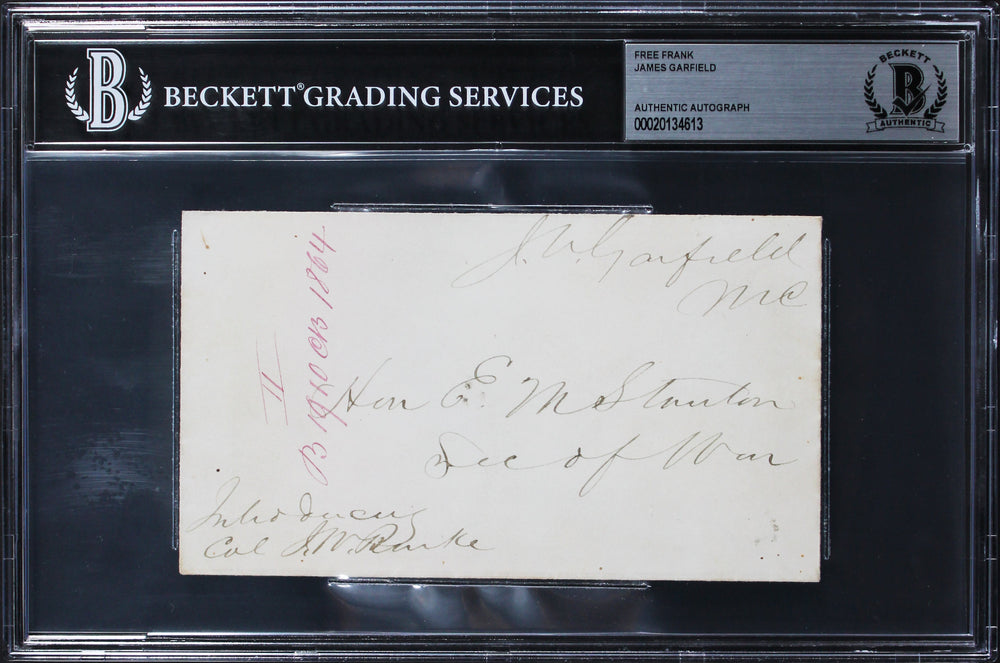 BECKETT® GRADING SERVICES
FREE FRANK
JAMES GARFIELD
AUTHENTIC AUTOGRAPH
00020134613
BECKETT
B
AUTHENTIC
J. A. Garfield
MC
Hon E. M Stanton
Sec of War
Introducing
Col J. W. Burke
II
B 1940 CB 1864